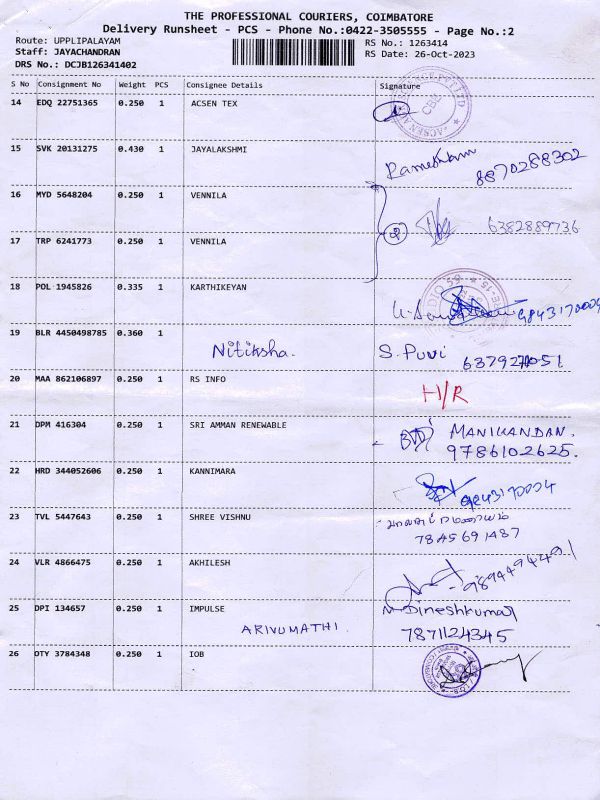 THE PROFESSIONAL COURIERS, COIMBATORE
Delivery Runsheet - PCS - Phone No.:0422-3505555 - Page No.:2
Route: UPPLIPALAYAM
RS No.: 1263414
Staff: JAYACHANDRAN
RS Date: 26-Oct-2023
DRS No.: DCJB126341402
S No Consignment No Weight PCS Consignee Details Signature
14 EDQ 22751365 0.250 1 ACSEN TEX
15 SVK 20131275 0.430 1 JAYALAKSHMI
Rameshram 8870288302
16 MYD 5648204 0.250 1 VENNILA
② 6382889736
17 TRP 6241773 0.250 1 VENNILA
18 POL 1945826 0.335 1 KARTHIKEYAN
9843170004
19 BLR 4450498785 0.360 1
Nitiksha. S. Puvi
20 MAA 862106897 0.250 1 RS INFO
H/R
21 DPM 416304 0.250 1 SRI AMMAN RENEWABLE
MANIKANDAN.
9786102625.
22 HRD 344052606 0.250 1 KANNIMARA
9843170004
23 TVL 5447643 0.250 1 SHREE VISHNU
7845691487
24 VLR 4866475 0.250 1 AKHILESH
9894494491
25 DPI 134657 0.250 1 IMPULSE
M. Dineshkumar
ARIVUMATHI.
7871124345
26 OTY 3784348 0.250 1 IOB